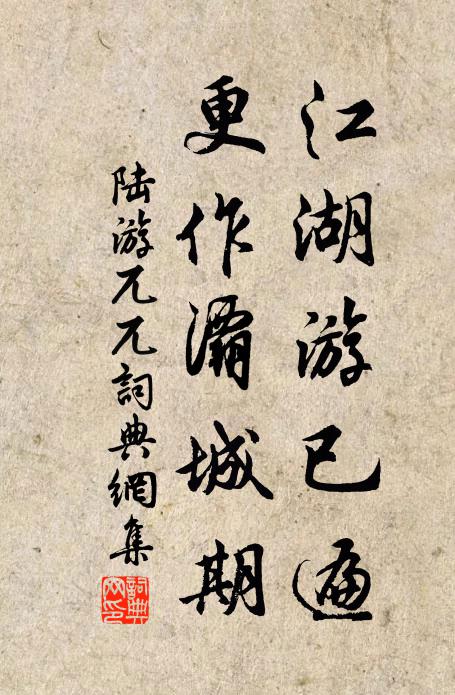 江湖游已遍
更作灞城期
陆游兀兀詞典網集
詞典網印